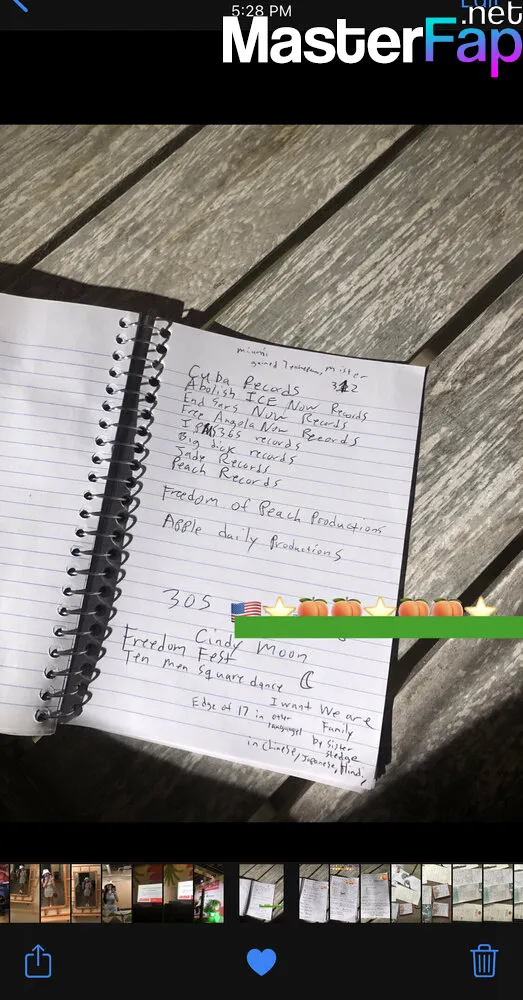 5:28 PM
Edit
MasterFap
.net
miami
gained mister
Cuba Records 312
Abolish ICE Now Records
End Sars Now Records
Free Angela Now Records
365 records
Big dick records
Jade Records
Peach Records
Freedom of Peach Productions
Apple daily Productions
305
Cindy Moon
Freedom Fest
Ten men square dance
I want We are
Edge of 17 in other Family
languages by Sister
sledge
in Chinese, Japanese, Hindi,